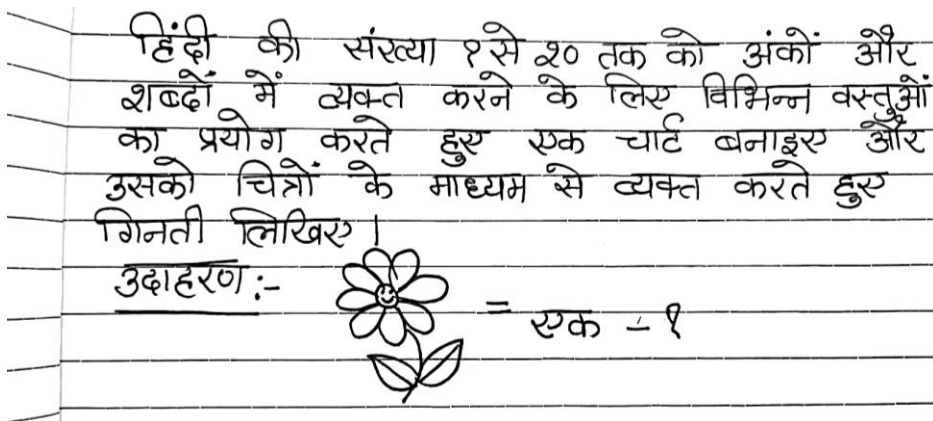 हिंदी की संख्या १ से २० तक को अंकों और
शब्दों में व्यक्त करने के लिए विभिन्न वस्तुओं
का प्रयोग करते हुए एक चार्ट बनाइए और
उसको चित्रों के माध्यम से व्यक्त करते हुए
गिनती लिखिए।
उदाहरण :-
= एक - १